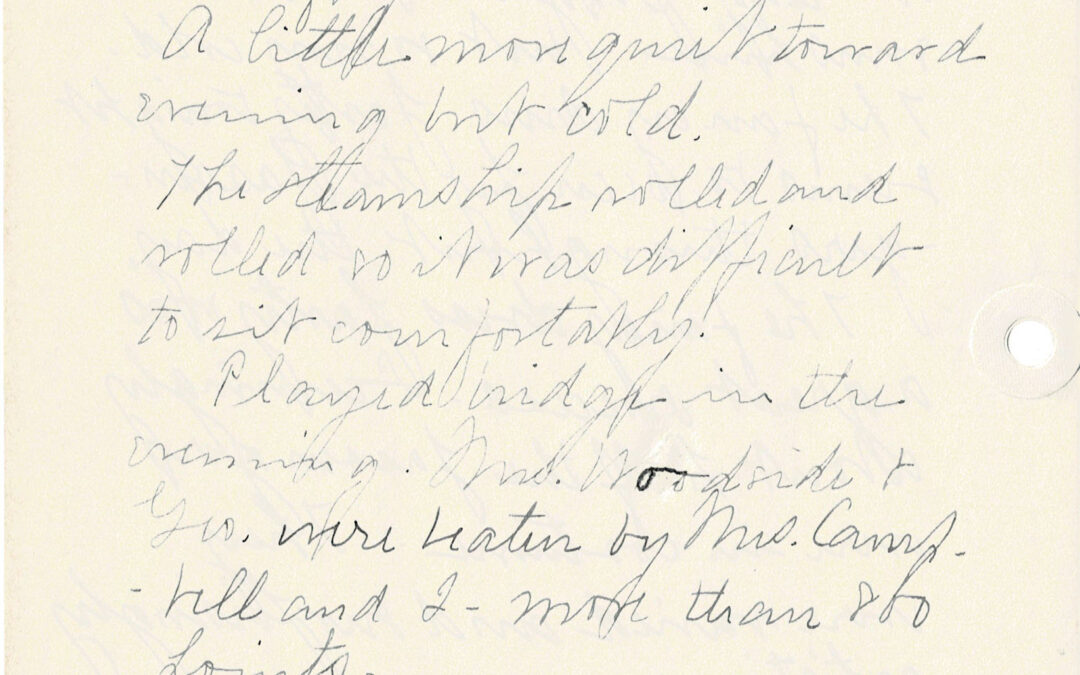 A little more quiet toward
evening but cold.
The steamship rolled and
rolled so it was difficult
to sit comfortably.
Played bridge in the
evening. Mrs. Woodside &
Geo. were beaten by Mrs. Camp-
-bell and I - more than 800
points.